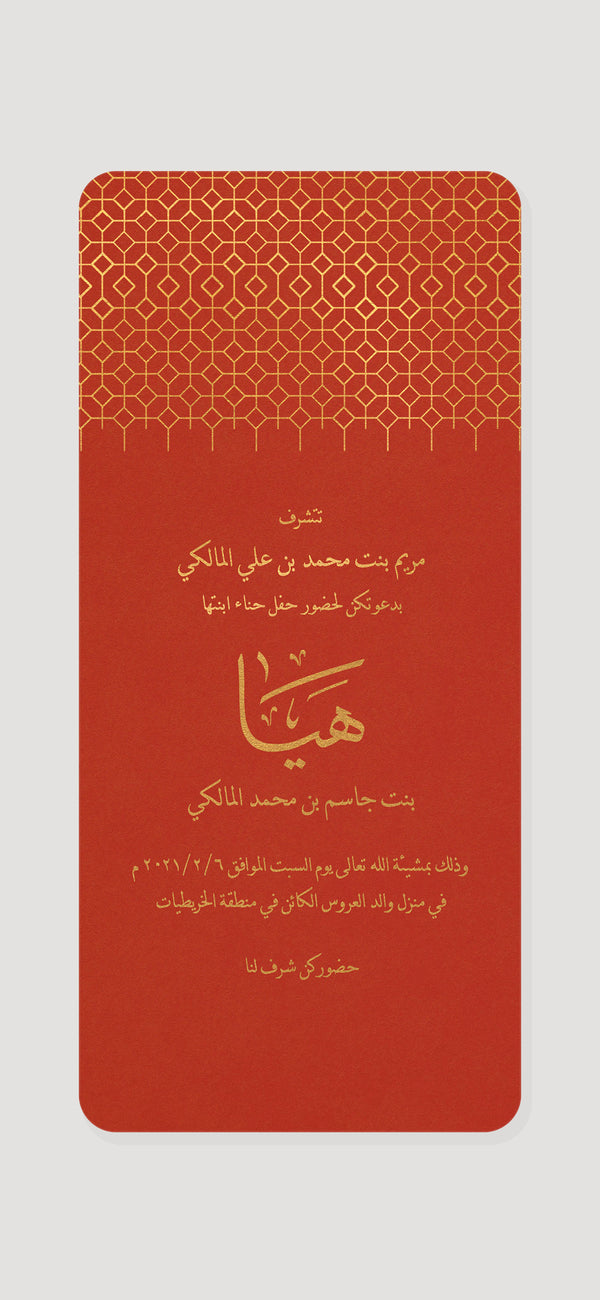 تتشرف
مريم بنت محمد بن علي المالكي
بدعوتكن لحضور حفل حناء ابنتها
هيا
بنت جاسم بن محمد المالكي
وذلك بمشيئة الله تعالى يوم السبت الموافق ٢٠٢١/٢/٦ م
في منزل والد العروس الكائن في منطقة الخريطيات
حضوركن شرف لنا